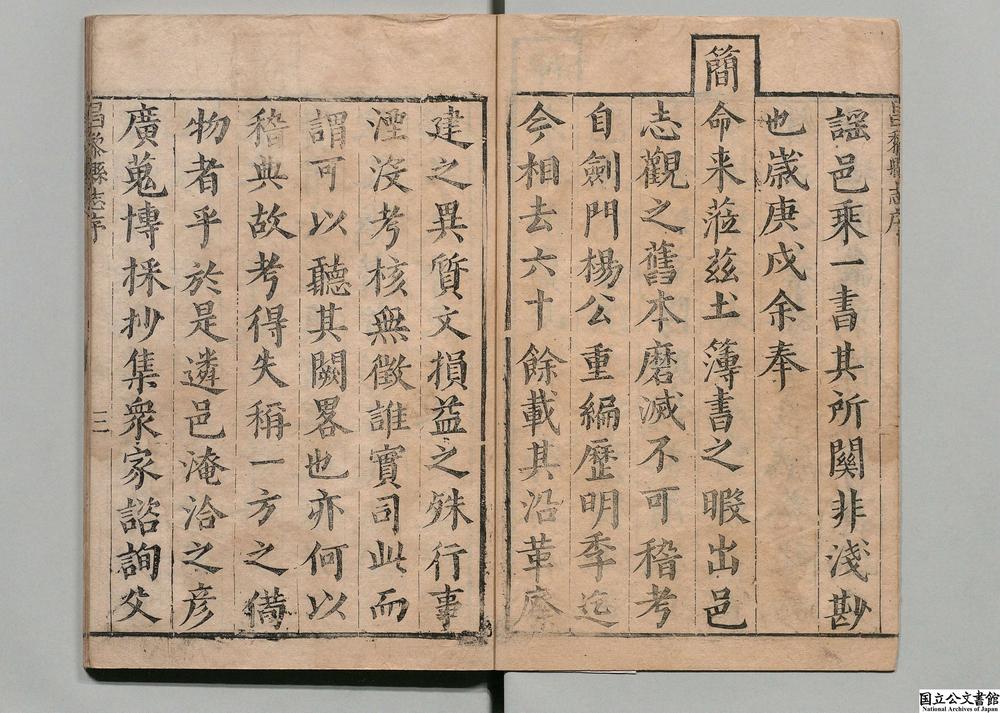 謡邑乘一書其所關非淺尠
也歲庚戌余奉
簡
命来蒞兹土簿書之暇出邑
志觀之舊本磨滅不可稽考
自劍門楊公重編歷明季迄
今相去六十餘載其沿革廢
建之異質文損益之殊行事
湮没考核無徵誰實司此而
謂可以聽其闕畧也亦何以
稽典故考得失稱一方之備
物者乎於是遴邑淹洽之彦
廣蒐博採抄集衆家諮詢父
昌黎縣志序
昌黎縣志序
三
国立公文書館
National Archives of Japan